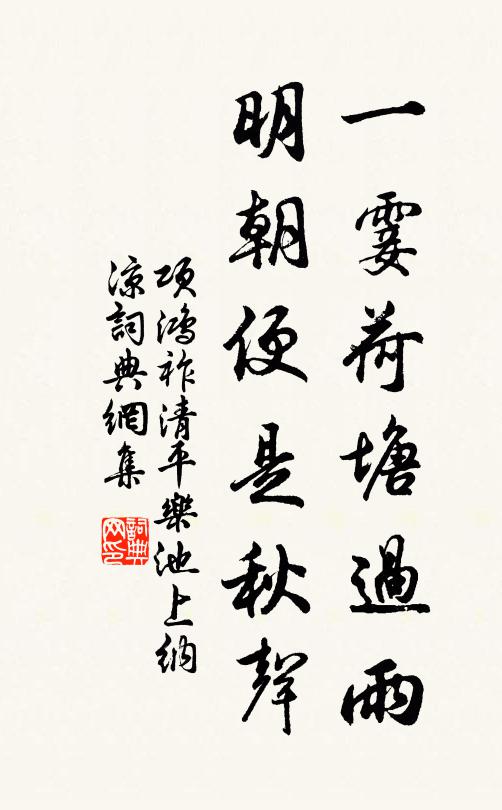 一霎荷塘過雨
明朝便是秋聲
項鴻祚清平樂池上納
涼詞典網集
詞典
网印